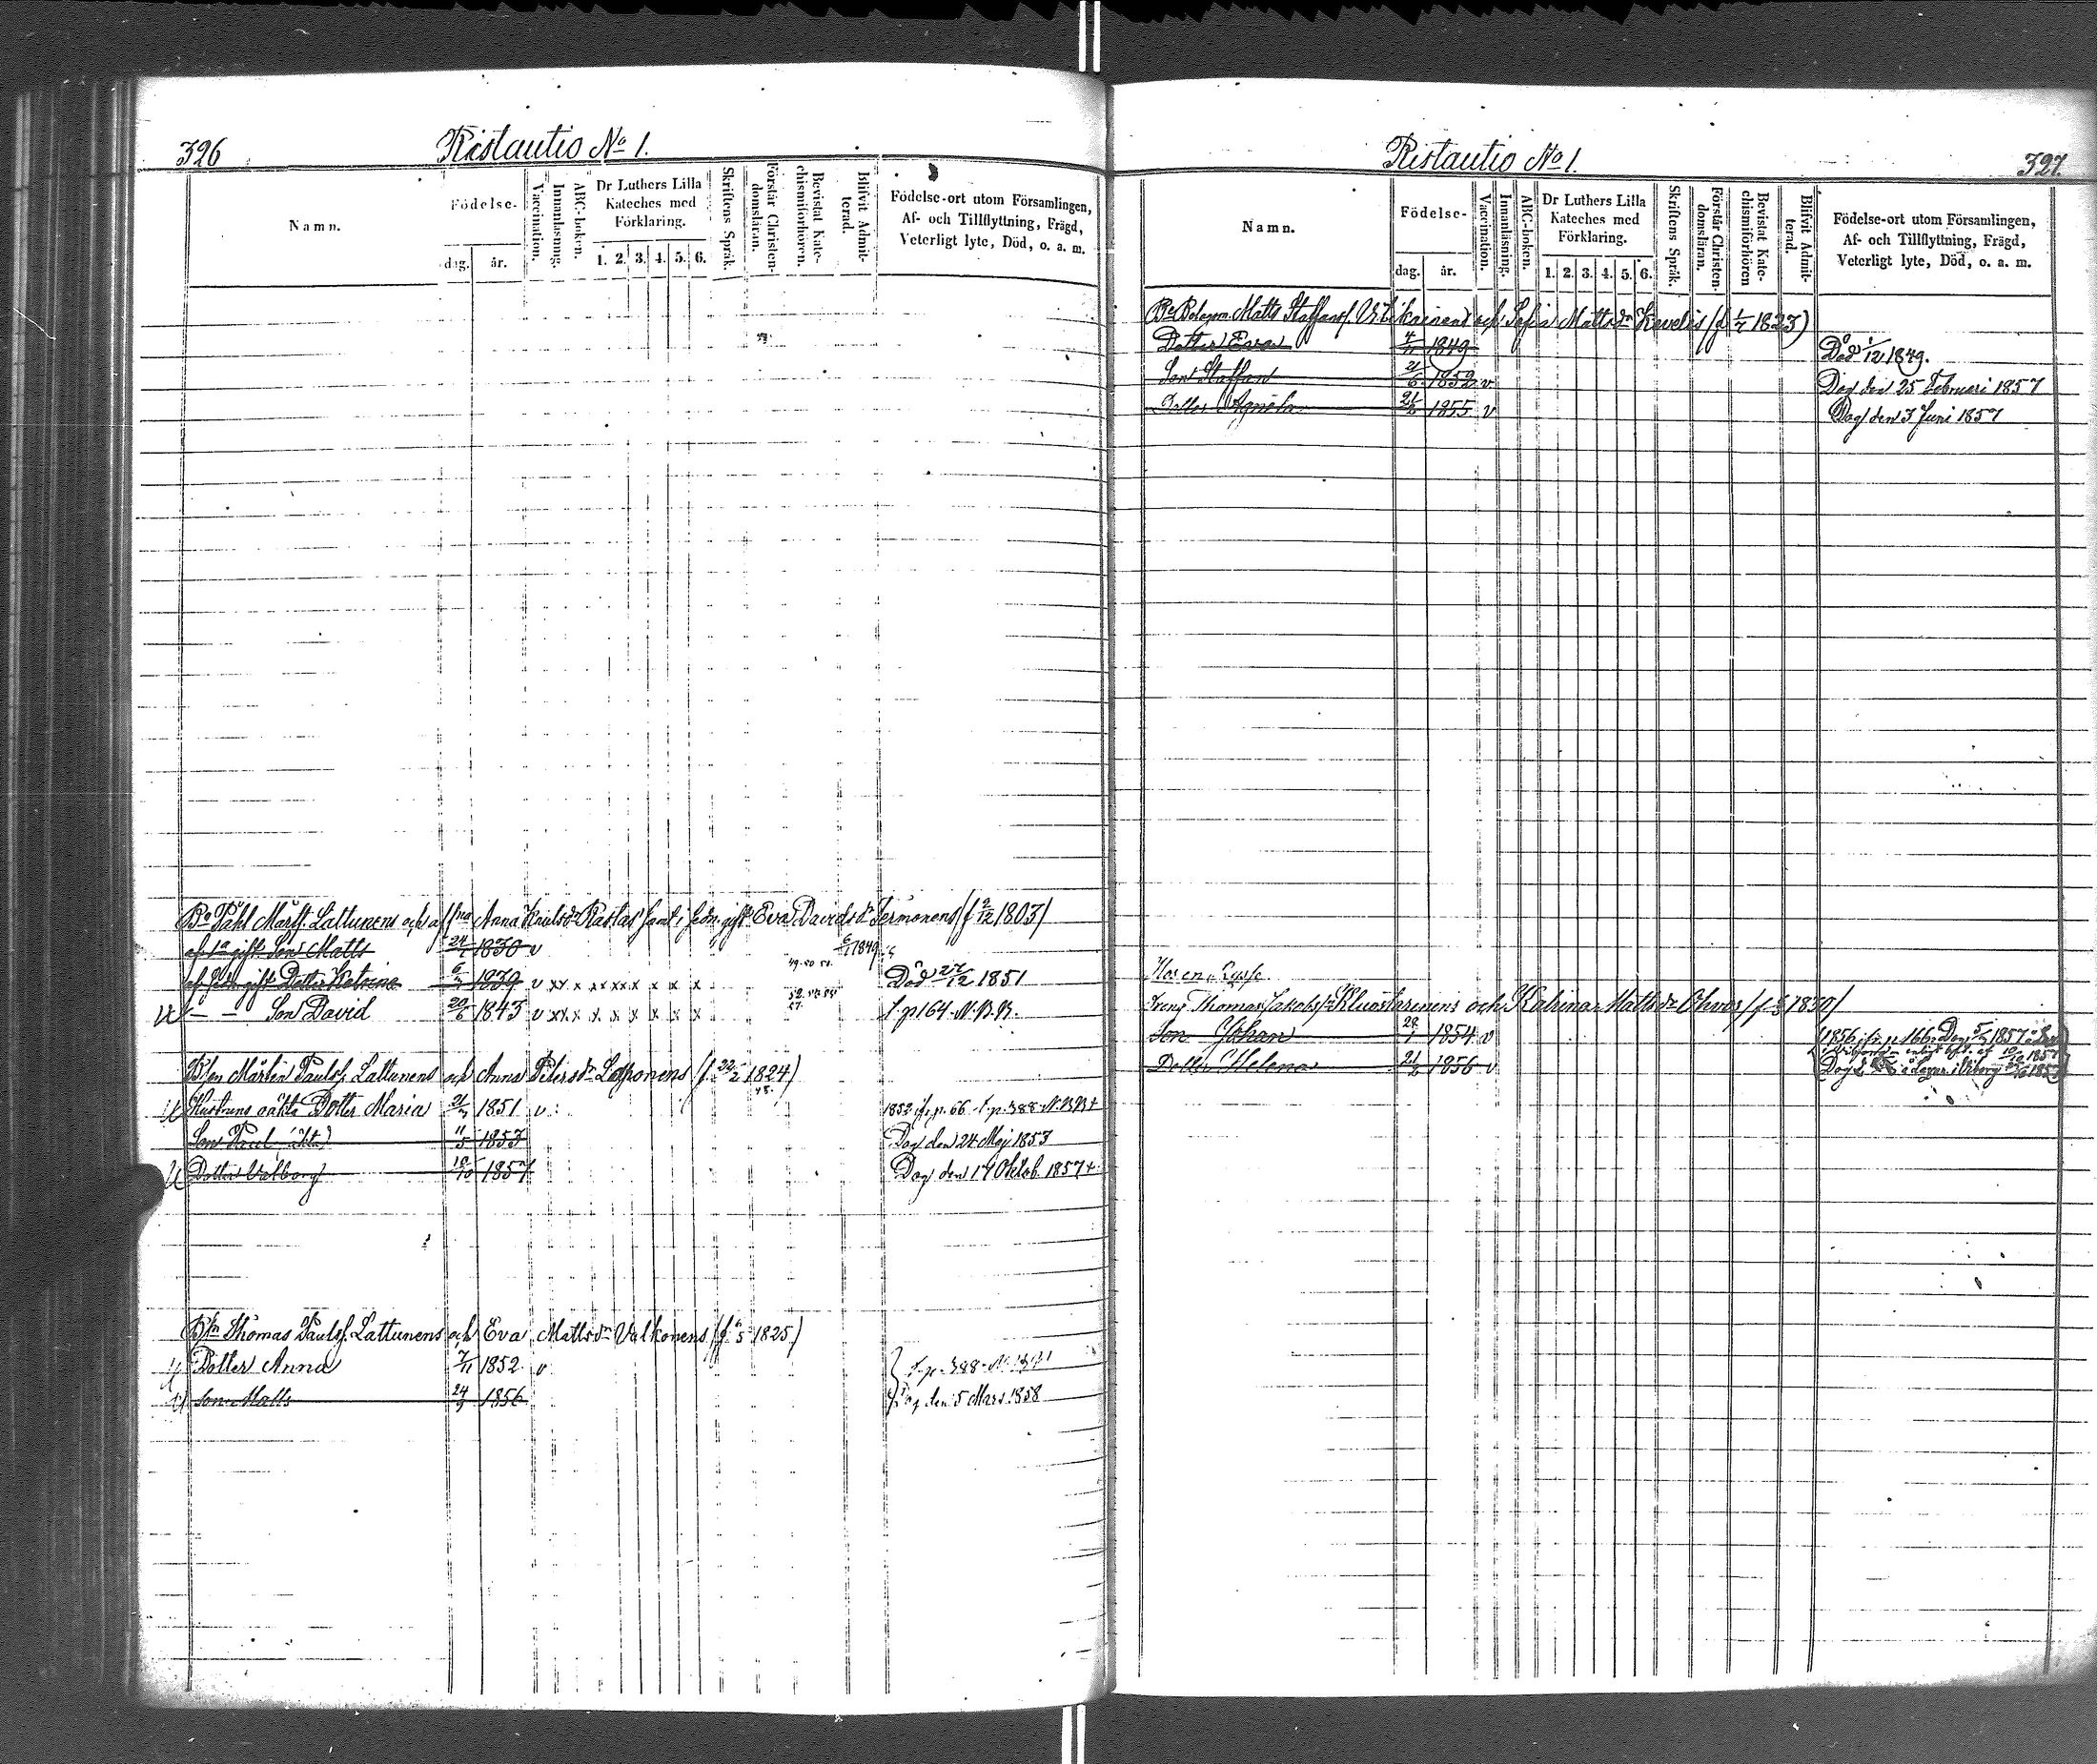 326
Ristautio No 1.
Namn.
Födelse-
dag. år.
Vaccination.
Innanläsning.
ABC-boken.
Dr Luthers Lilla
Kateches med
Förklaring.
1. 2. 3. 4. 5. 6.
Skriftens Språk.
Förstår Christen-
domsläran.
Bevistat Kate-
chismiförhören.
Blifvit Admit-
terad.
Födelse-ort utom Församlingen,
Af- och Tillflyttning, Frägd,
Veterligt lyte, Död, o. a. m.
Bo Påhl Mårtf. Lattunens och Anna Paulsdr Rastas samt gift Eva Davidsdr Termonens (f 2/12 1803)
af 1a gift Son Matts 24/1 1830 v 1849
af gift Dotter Katrina 6/ 1839 v xx x x x x x x x x x 49. 50. 51. Död 27/12 1851
— — Son David 20/6 1843 v x x x x x x x x x x f. p 164. N. B. B.
Mårten Paulsf. Lattunens och Anna Petersdr Lapponens (f. 22/2 1824)
Hustruns oäkta Dotter Maria 21/ 1851 v 1852 ifr. p. 66 f. p. 388. N. B. B.
Son Paul äkta 11/5 1853 Dog den 24 Maj 1853
Dotter Valborg 10/10 1857 Dog den 14 Oktob. 1857
Thomas Paulsf. Lattunens och Eva Mattsdr Valkonens (f. 6/5 1825)
Dotter Anna 7/11 1852 v f. p. 388
Son Matts 24/9 1856 Dog den 5 Mars 1858
Ristautio No 1.
327.
Namn.
Födelse-
dag. år.
Vaccination.
Innanläsning.
ABC-boken.
Dr Luthers Lilla
Kateches med
Förklaring.
1. 2. 3. 4. 5. 6.
Skriftens Språk.
Förstår Christen-
domsläran.
Bevistat Kate-
chismiförhören
Blifvit Admit-
terad.
Födelse-ort utom Församlingen,
Af- och Tillflyttning, Frägd,
Veterligt lyte, Död, o. a. m.
Matts Staffansf. och Sofia Mattsdr Kevelis (f 1823)
Dotter Eva 1849 Död /12 1849.
Son Staffan 21/6 1852 v Dog den 25 Februari 1857
Dotter Agneta 1855 v Dog den 3 Juni 1857
Thomas Jakobsf. och Katrina Mattsdr (f 1830)
Son Johan 1854 v 1856 ifr. p. 166. Dog 1857
Dotter Helena 1856 v